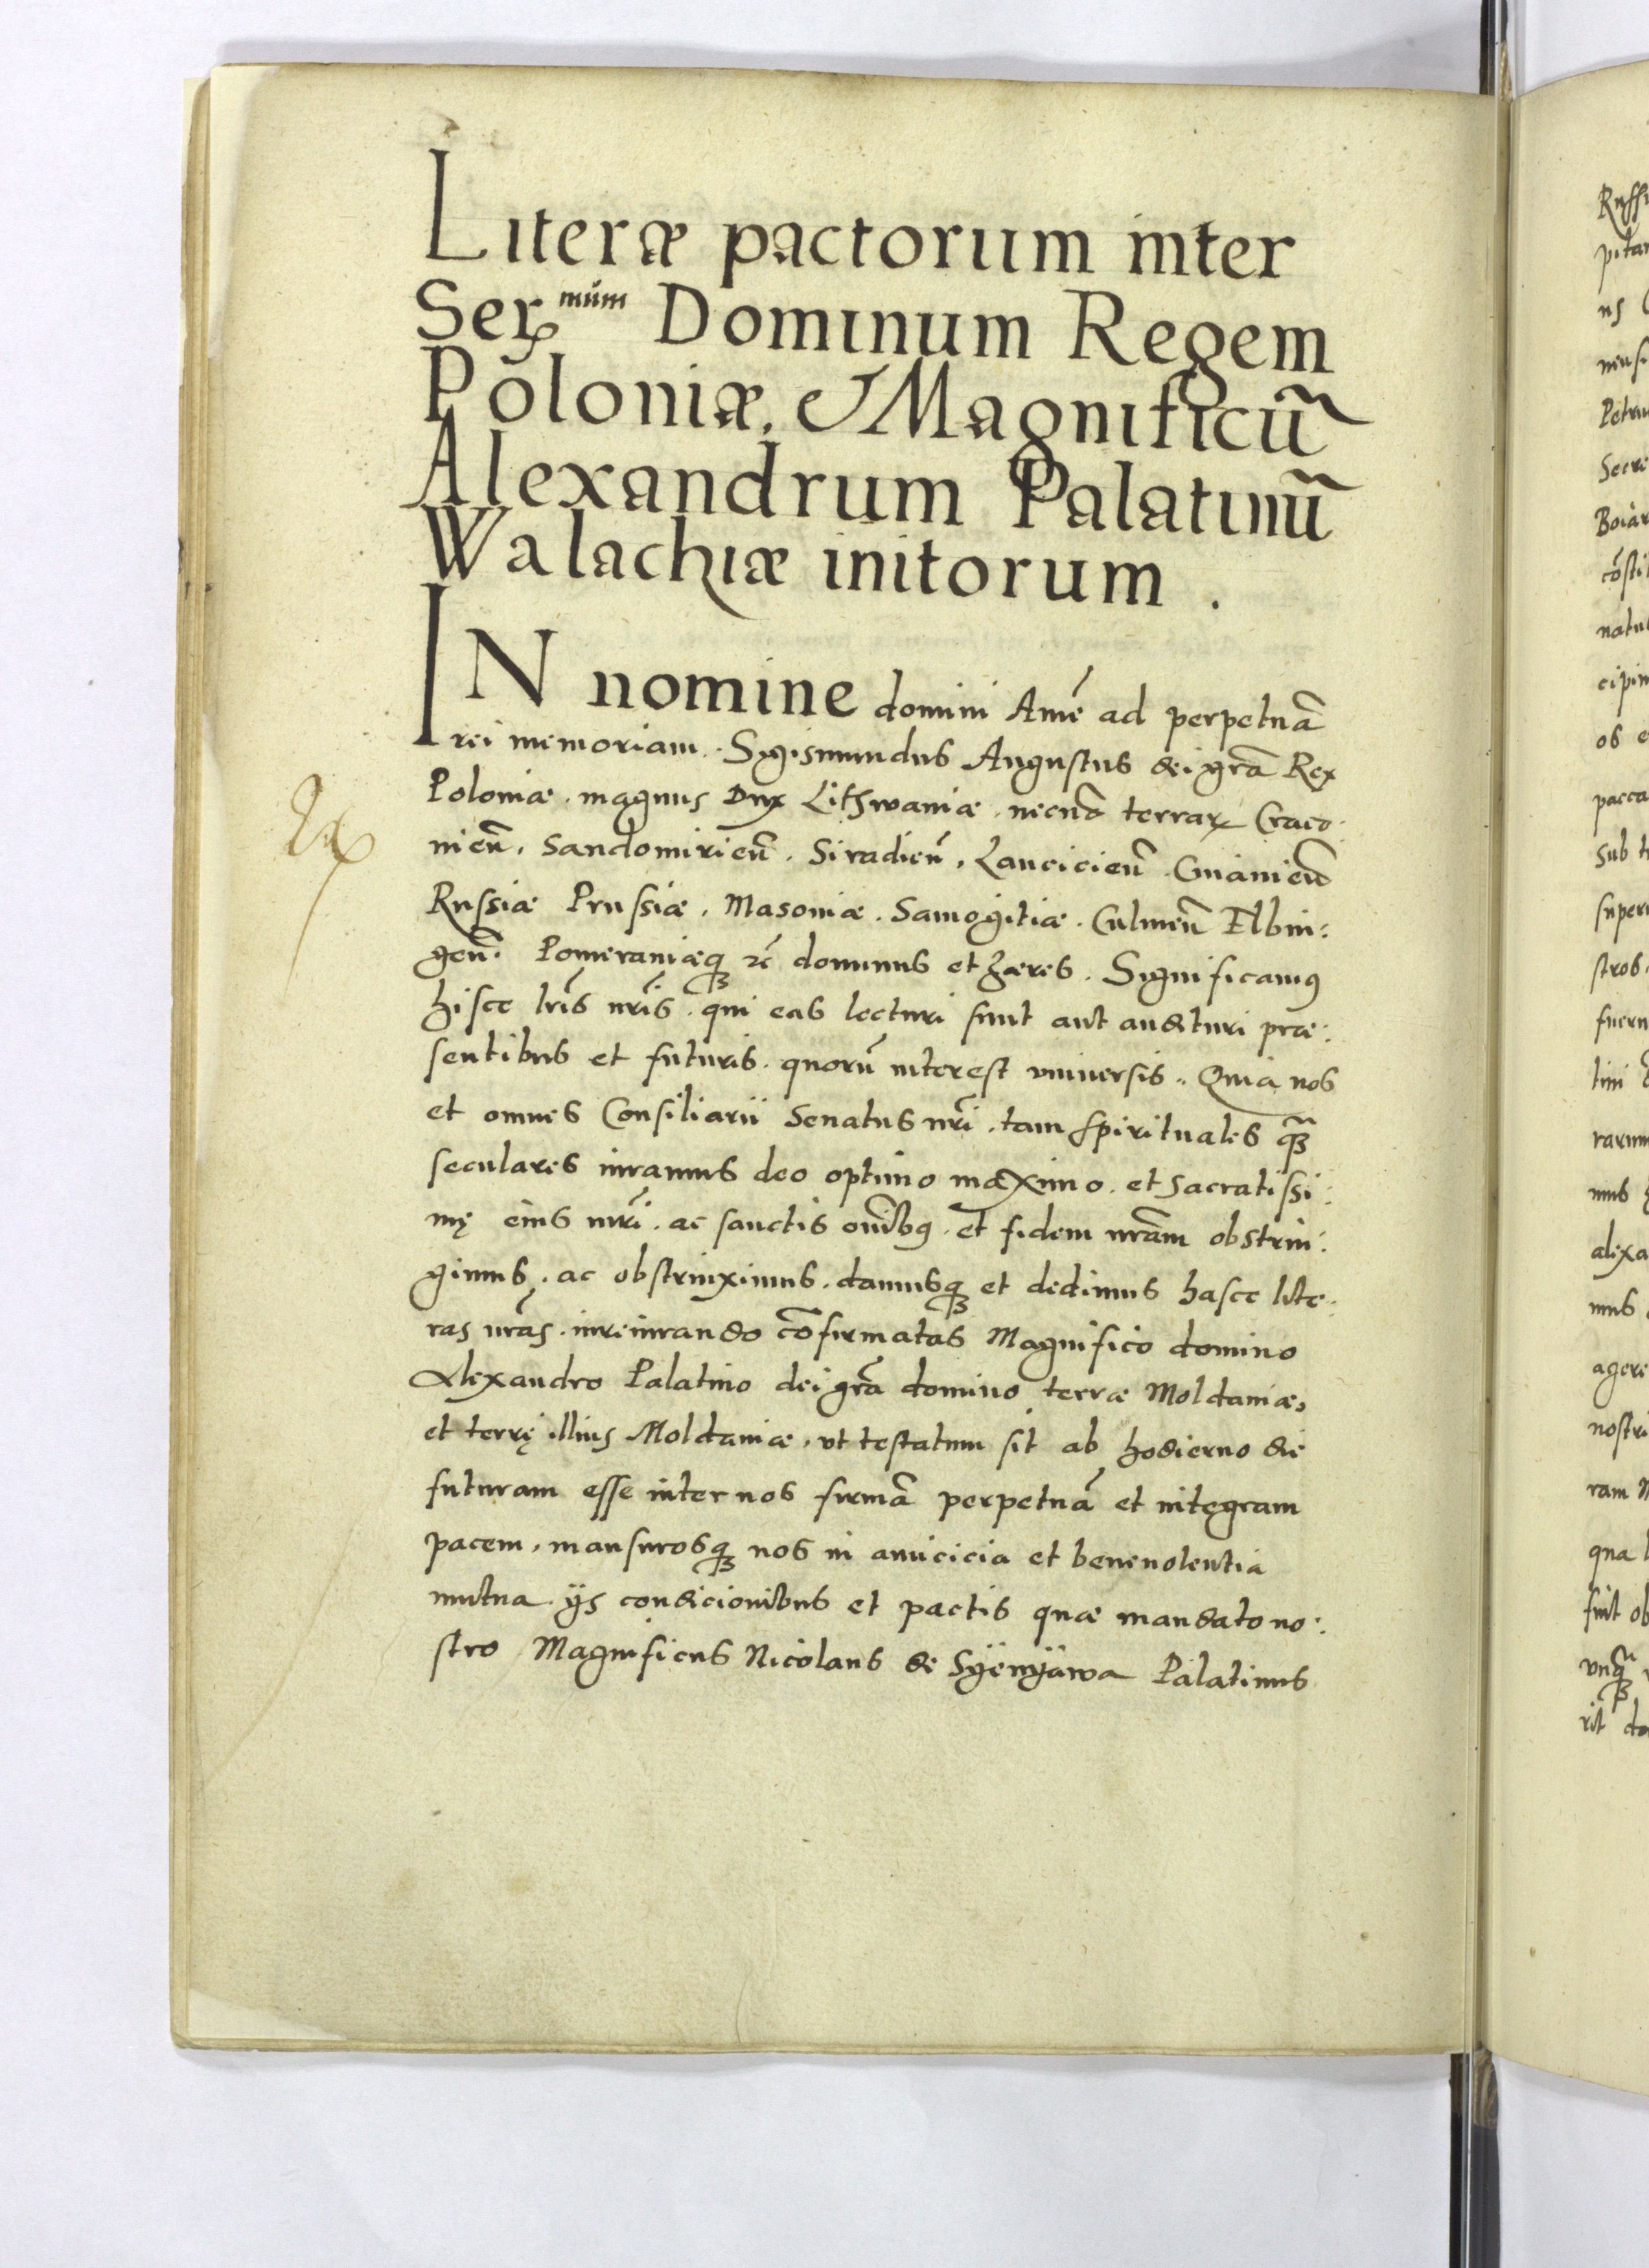 Literæ pactorum inter
Ser.mum Dominum Regem
Poloniæ, & Magnificũ
Alexandrum Palatinũ
Walachiæ initorum.
IN nomine domini Amẽ ad perpetuã
rei memoriam. Sigismundus Augustus dei grã Rex
Poloniæ. magnus Dux Lithwaniæ. necnõ terraꝝ Craco-
nieñ. Sandomirieñ. Siradieñ. Lancicieñ. Cuiauieñ
Russiæ Prussiæ. Masoniæ. Samogitiæ. Culmeñ Elbin:
geñ. Pomeraniæqꝫ ꝛc̃ dominus et hæres. Significamꝰ
hisce lr̃is nr̃is. qui eas lecturi sunt aut audituri præ:
sentibus et futuris. quorũ interest vniuersis. Quia nos
et omnes Consiliarii Senatus nr̃i. tam spirituales qꝫ̃
seculares iuramus deo optimo maximo. et sacratissi:
mę eius mr̃i. ac sanctis om̃ibꝰ. et fidem nr̃am obstrin:
gimus. ac obstrinximus. damusqꝫ et dedimus hasce lite-
ras nr̃as. iureiurando cõfirmatas Magnifico domino
Alexandro Palatino dei grã domino terræ Moldauiæ,
et terrę illius Moldauiæ. vt testatum sit ab hodierno die
futuram esse inter nos firmã perpetuã et integram
pacem. mansurosqꝫ nos in amicicia et beneuolentia
mutua. ijs condicionibus et pactis quæ mandato no:
stro Magnificus Nicolaus de Syenyawa Palatinus